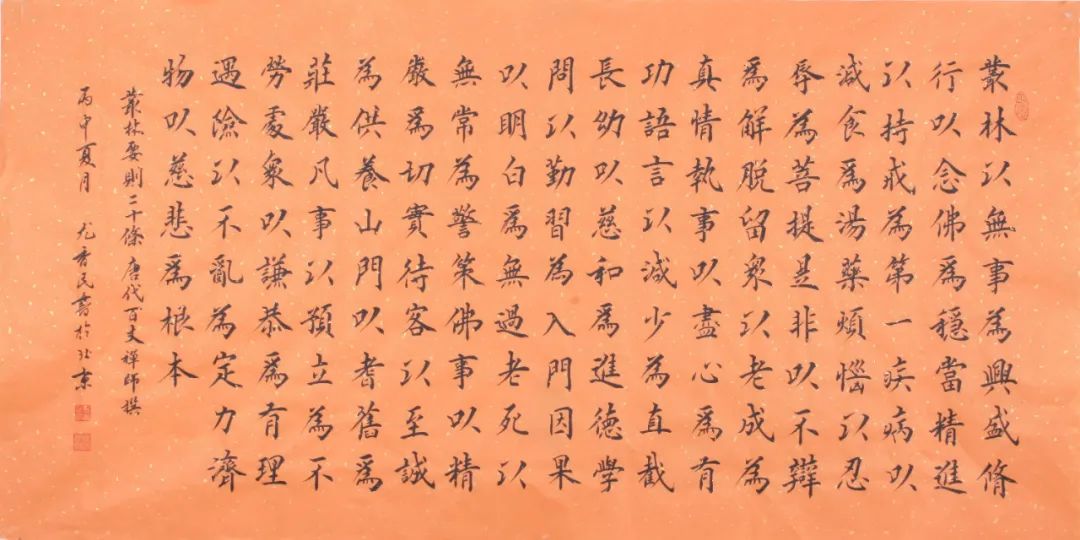 叢林以無事為興盛脩
行以念佛爲穩當精進
以持戒為第一疾病以
減食爲湯藥煩惱以忍
辱為菩提是非以不辯
爲解脫留衆以老成為
真情執事以盡心爲有
功語言以減少為直截
長幼以慈和爲進德學
問以勤習為入門因果
以明白爲無過老死以
無常為警策佛事以精
嚴為切實待客以至誠
為供養山門以耆舊爲
莊嚴凡事以預立為不
勞處衆以謙恭爲有理
遇險以不亂為定力濟
物以慈悲爲根本
叢林要則二十條 唐代百丈禪師撰
丙申夏月 尤 民書於北京